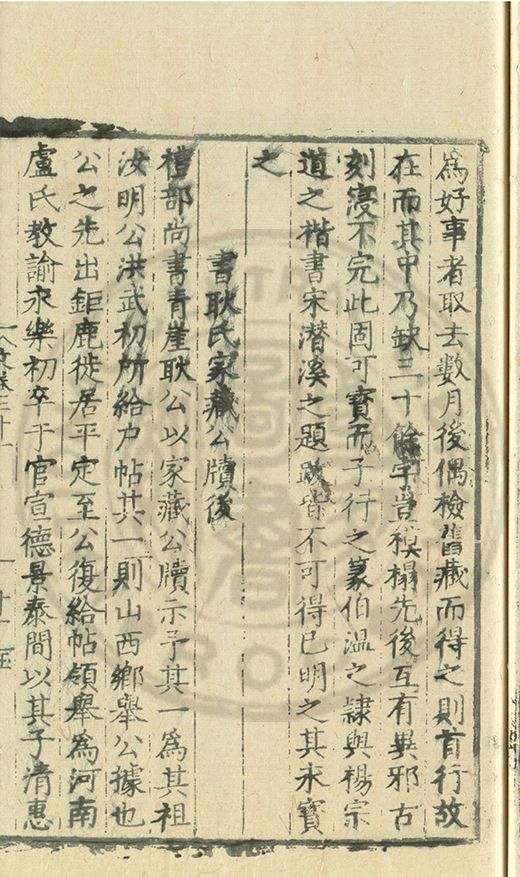 為好事者取去數月後偶檢舊藏而得之則首行故
在而其中乃缺三十餘字豈模榻先後互有異邪古
刻寖不完此固可寶而子行之篆伯溫之隸與楊宗
道之楷書宋潛溪之題跋皆不可得已明之其永寶
之
書耿氏家藏公牘後
禮部尚書青崖耿公以家藏公牘示予其一為其祖
汝明公洪武初所給戶帖其一則山西鄉舉公據也
公之先出鉅鹿徙居平定至公復給帖領舉為河南
盧氏教諭永樂初卒于官宣德景泰間以其子清惠